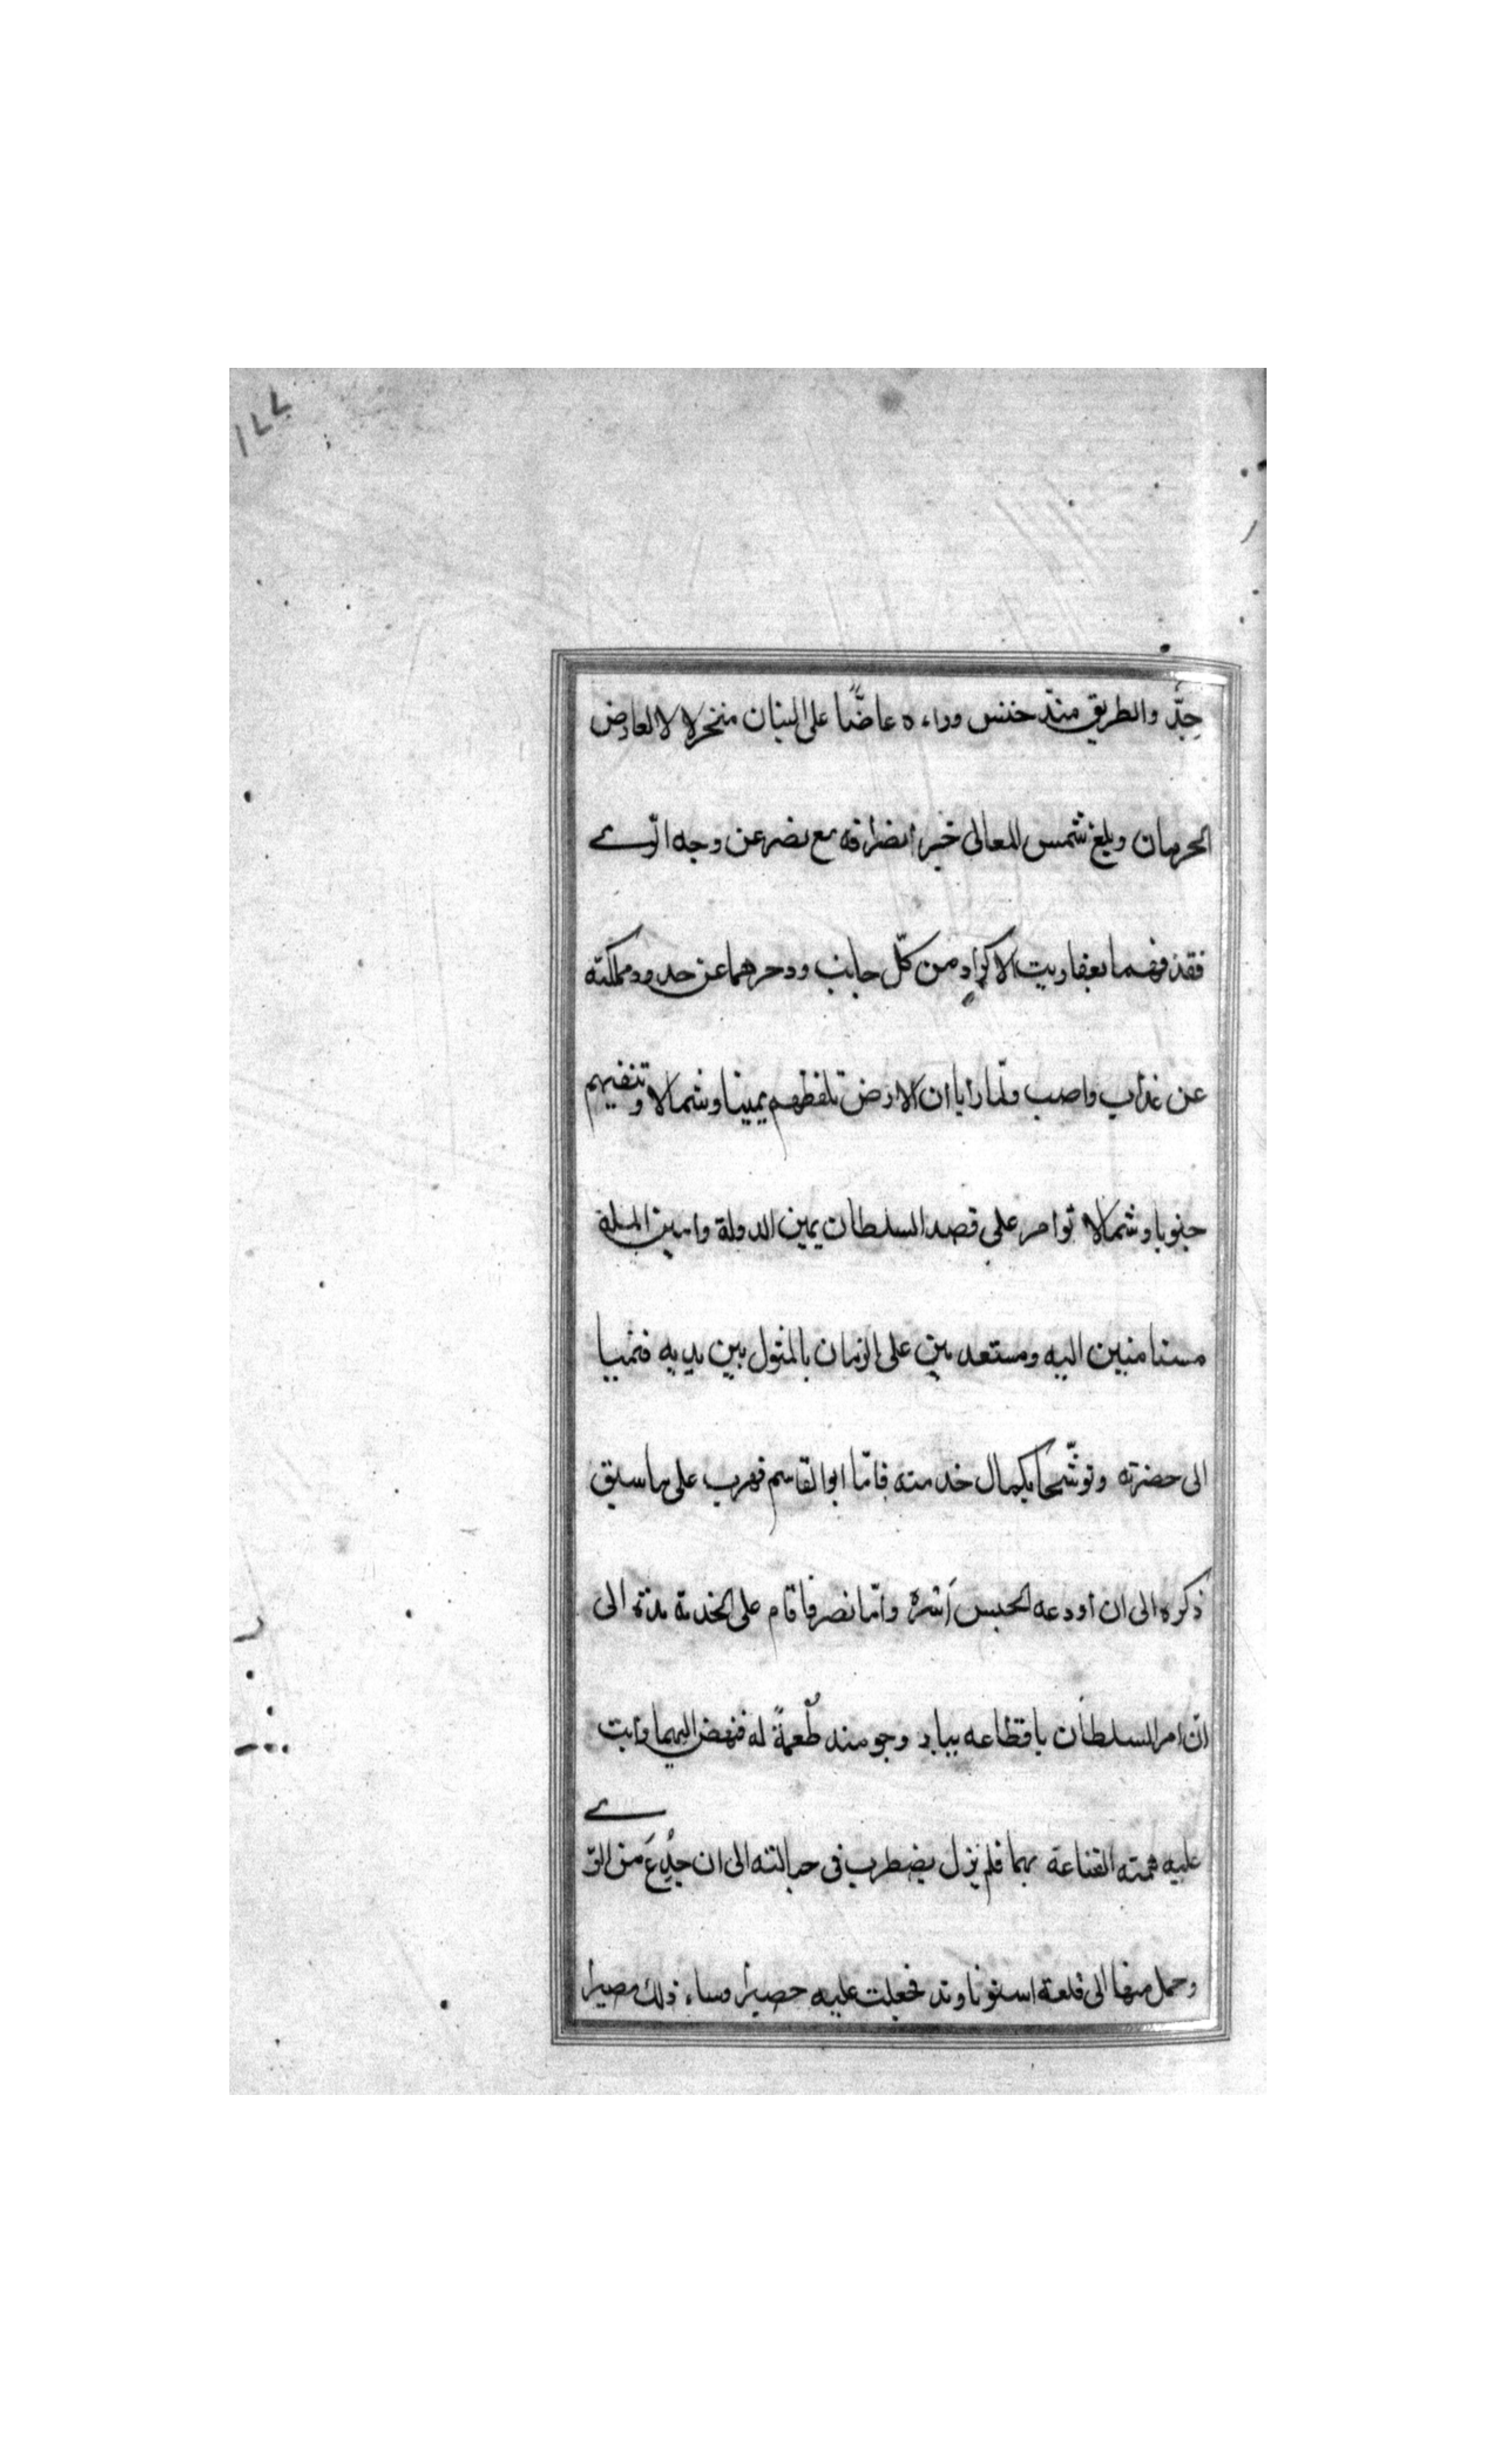 ١٧٧
جِدّ والطريق منذ خنس وراءه عاضًّا على البنان منخزلا لا لعارض
الحرمان وبلغ شمس المعالى خبر انصرافه مع نصر عن وجه الرّى
فقذفهما بعفاريت الاكراد من كلّ جانب ودحرهما عن حدود مملكته
عن عذاب واصب ولمّا رأيا ان الارض تلفظهم يمينا وشمالا وتنفيهم
جنوبا وشمالا توامر على قصد السلطان يمين الدولة وامين الملة
مستامنين اليه ومستعديين على الزمان بالمثول بين يديه فنميا
الى حضرته وتوشّحا بكمال خدمته فامّا ابوالقاسم فهرب على ما سبق
ذكره الى ان أودعه الحبس أشره وامّا نصر فاقام على الخدمة مدّة الى
ان امر السلطان باقطاعه بيار وجومند طُعمةً له فنهض اليهما وأبت
عليه همته القناعة بهما فلم يزل يضطرب فى حبالته الى ان خُدِعَ من الرّى
وحمل منها الى قلعة استوناوند فجعلت عليه حصيرا وساء ذلك مصيرا